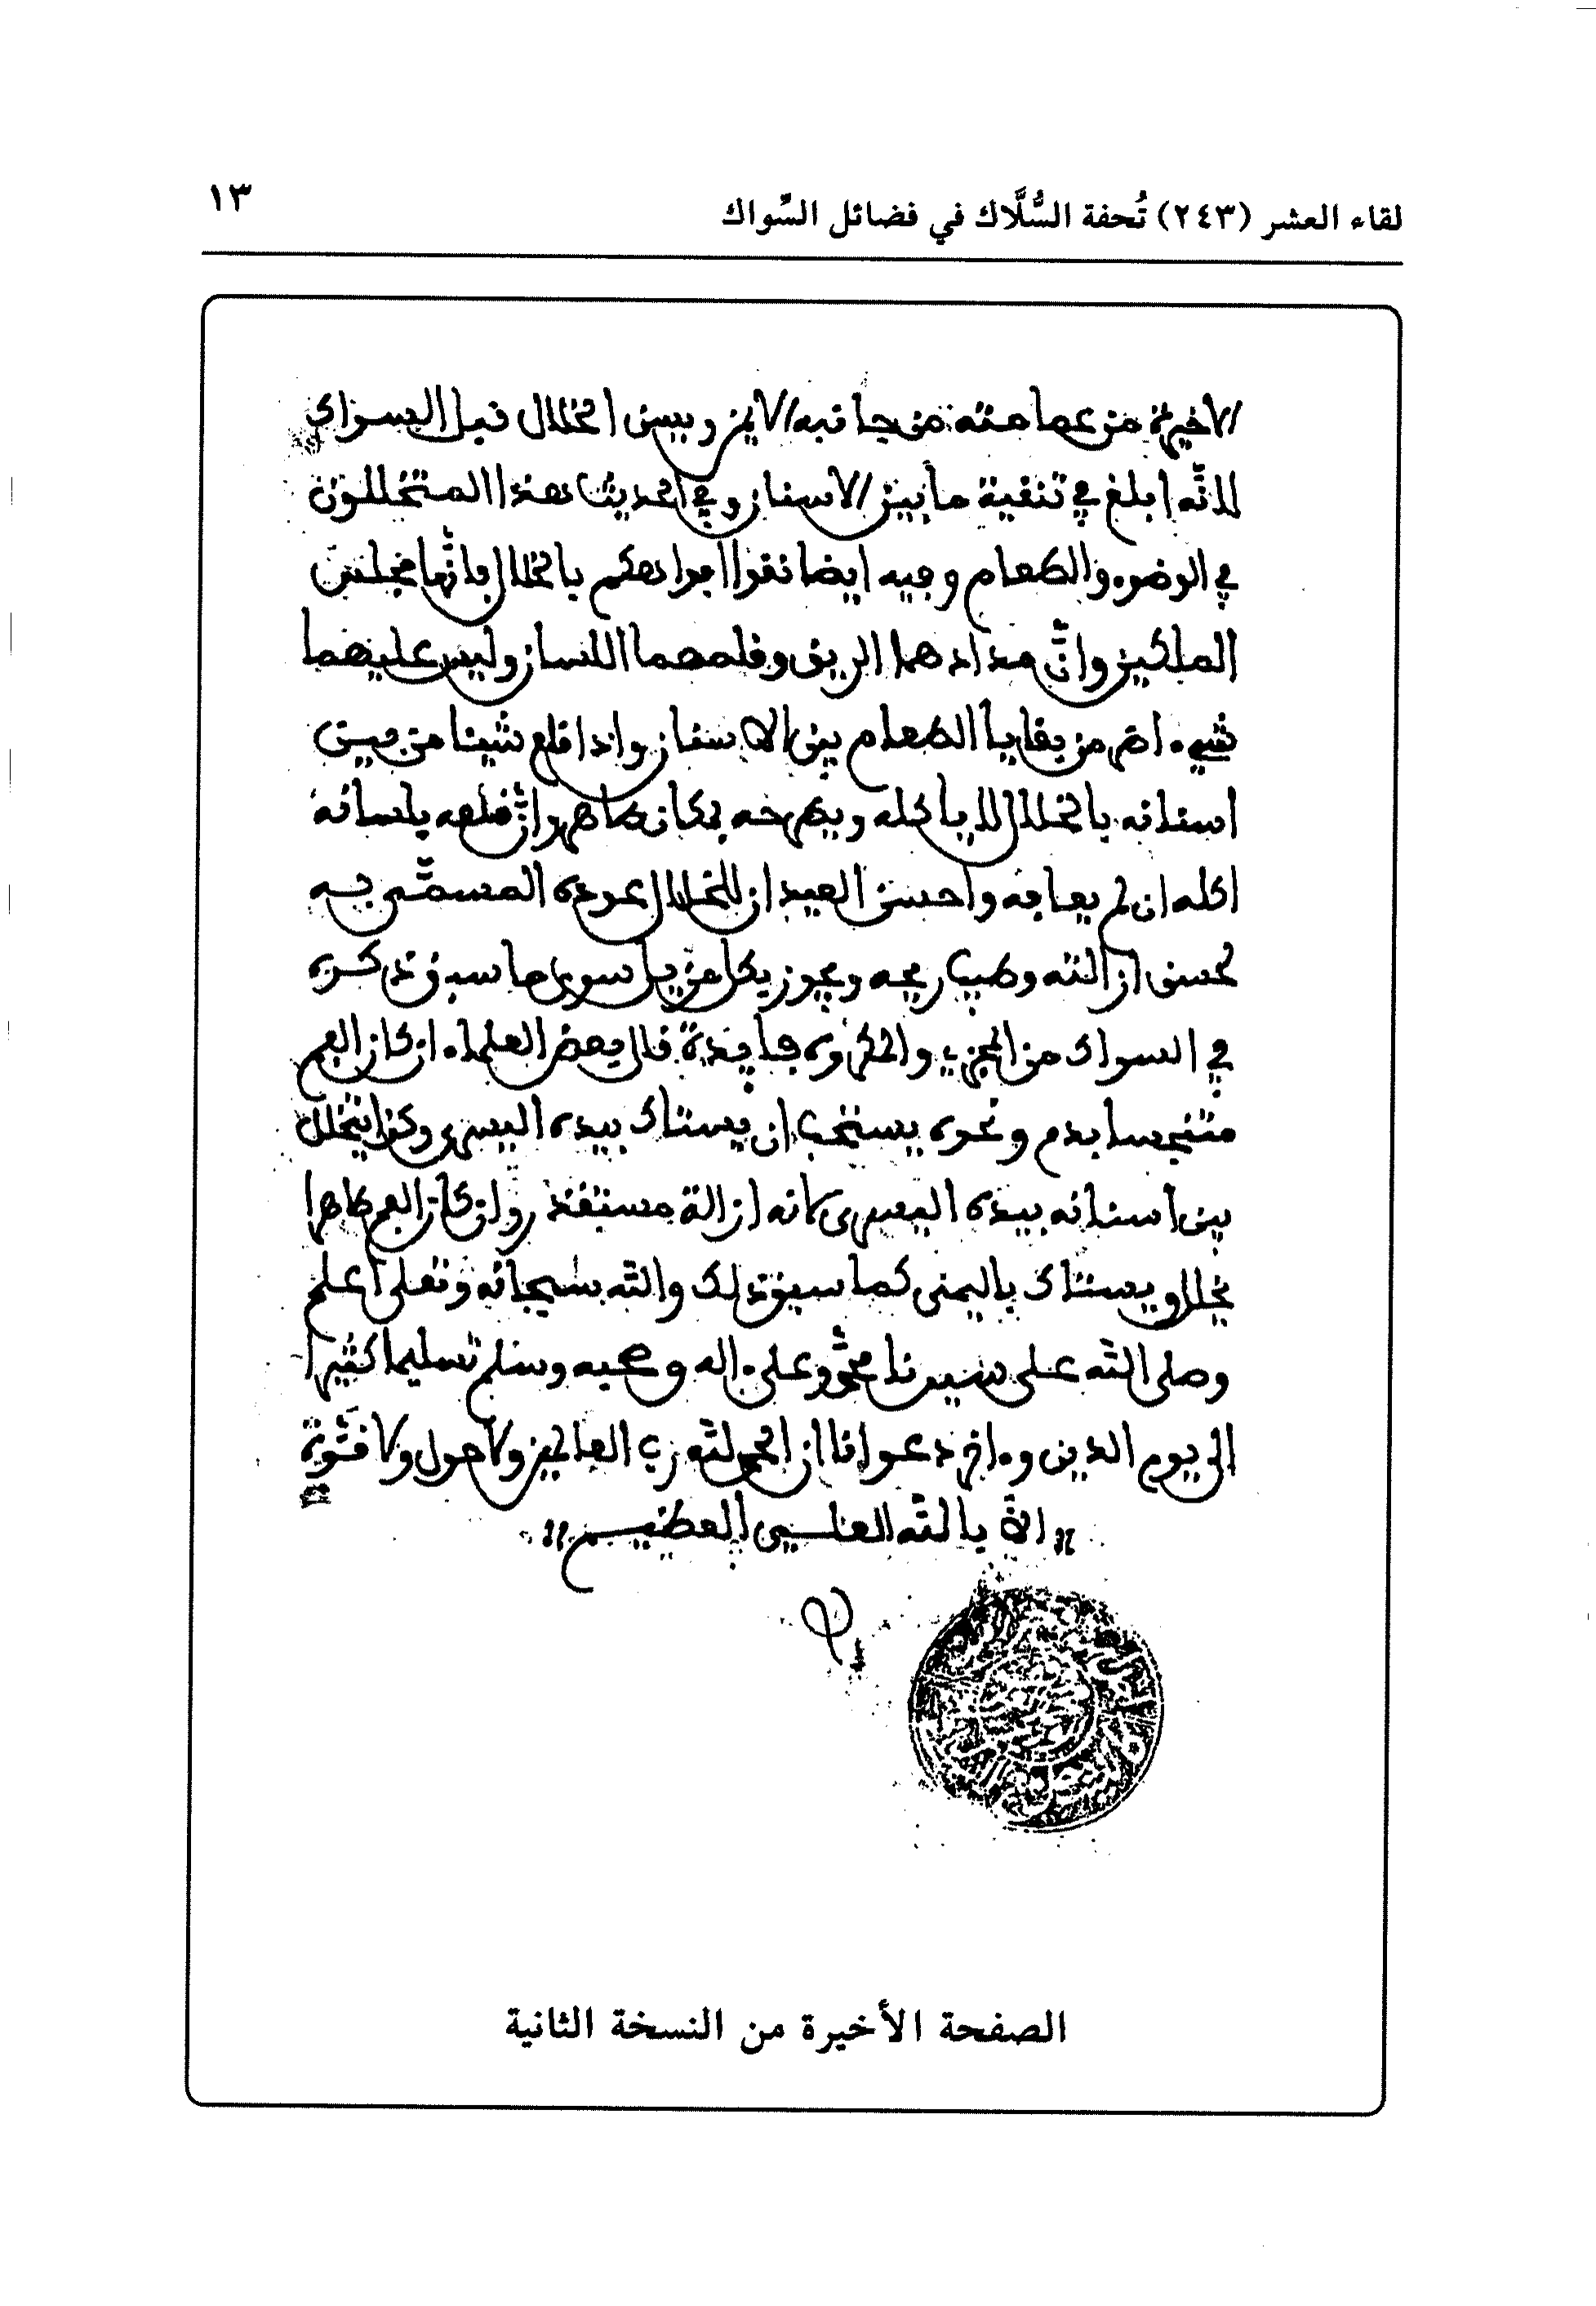 لقاء العشر (٢٤٣) تُحفة السُّلَّاك في فضائل السِّواك
١٣
الاخيرة من عمامته من جانبه الايمن ويسن الخلال قبل السواك
لانّه ابلغ في تنقية ما بين الاسنان وفي الحديث حبذا المتخللون
في الوضوء والطعام وفيه ايضا نقوا افواهكم بالخلال فانّها مجلس
الملكين وانّ مدادهما الريق وقلمهما اللسان وليس عليهما
شيء اضر من بقايا الطعام بين الاسنان واذا قلع شيئا من بين
اسنانه بالخلال لا ياكله ويطرحه بمكان طاهر وان قلعه بلسانه
اكله ان لم يعافه واحسن العيدان للخلال عوده المسمّى به
لحسن ازالته وطيب ريحه ويجوز بكل مزيل سوى ما سبق ذكره
في السواك من المجزي والمكروه فايدة قال بعض العلماء ان كان الفم
متنجسا بدم ونحوه يستحب ان يستاك بيده اليسرى وكذا يتخلل
بين اسنانه بيده اليسرى لانه ازالة مستقذر وان كان الفم طاهرا
تخلل ويستاك باليمنى كما سبق ذلك والله سبحانه وتعلى اعلم
وصلى الله على سيدنا محمد وعلى ءاله وصحبه وسلم تسليما كثيرا
الى يوم الدين وءاخر دعوانا ان الحمد لله رب العالمين ولا حول ولا قوة
الا بالله العلي العظيم
الصفحة الأخيرة من النسخة الثانية